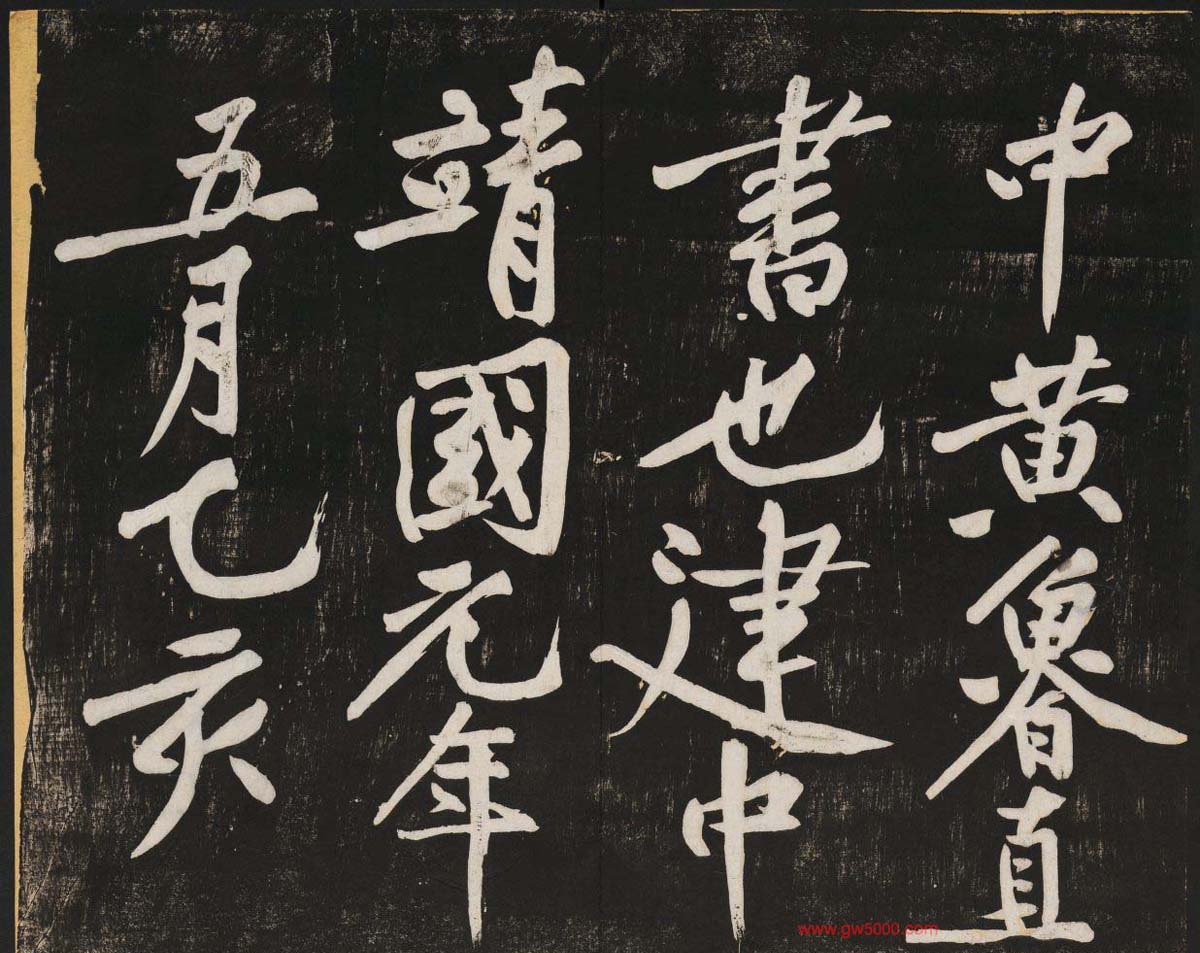 中黄魯直
書也建中
靖國元年
五月乙亥
www.gw5000.com